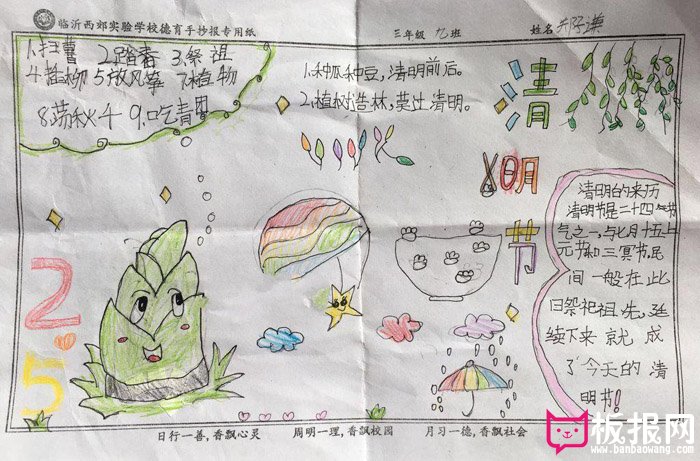 临沂西郊实验学校德育手抄报专用纸
三年级 九班
姓名
1.扫曹 2.踏春 3.祭祖
4.插柳 5.放风筝 7.植物
8.荡秋千 9.吃青团
1.种瓜种豆,清明前后。
2.植树造林,莫过清明。
清
明
节
清明的来历
清明节是二十四气节
气之一,与七月十五上
元节和三冥节,民
间一般在此
日祭祀祖先,延
续下来就成
了今天的清
明节!
2
5
日行一善,香飘心灵 周明一理,香飘校园 月习一德,香飘社会
板报网
www.banbaowang.com